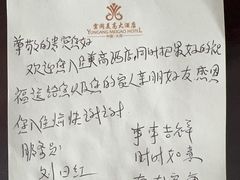 雲岡美高大酒店
YUNGANG MEIGAO HOTEL
尊敬的贵宾您好
欢迎您入住美高酒店,同时把最好的祝
福送给您以及您的家人亲朋好友感恩
您入住愉快谢谢
服务员:
事事吉祥
时时如意